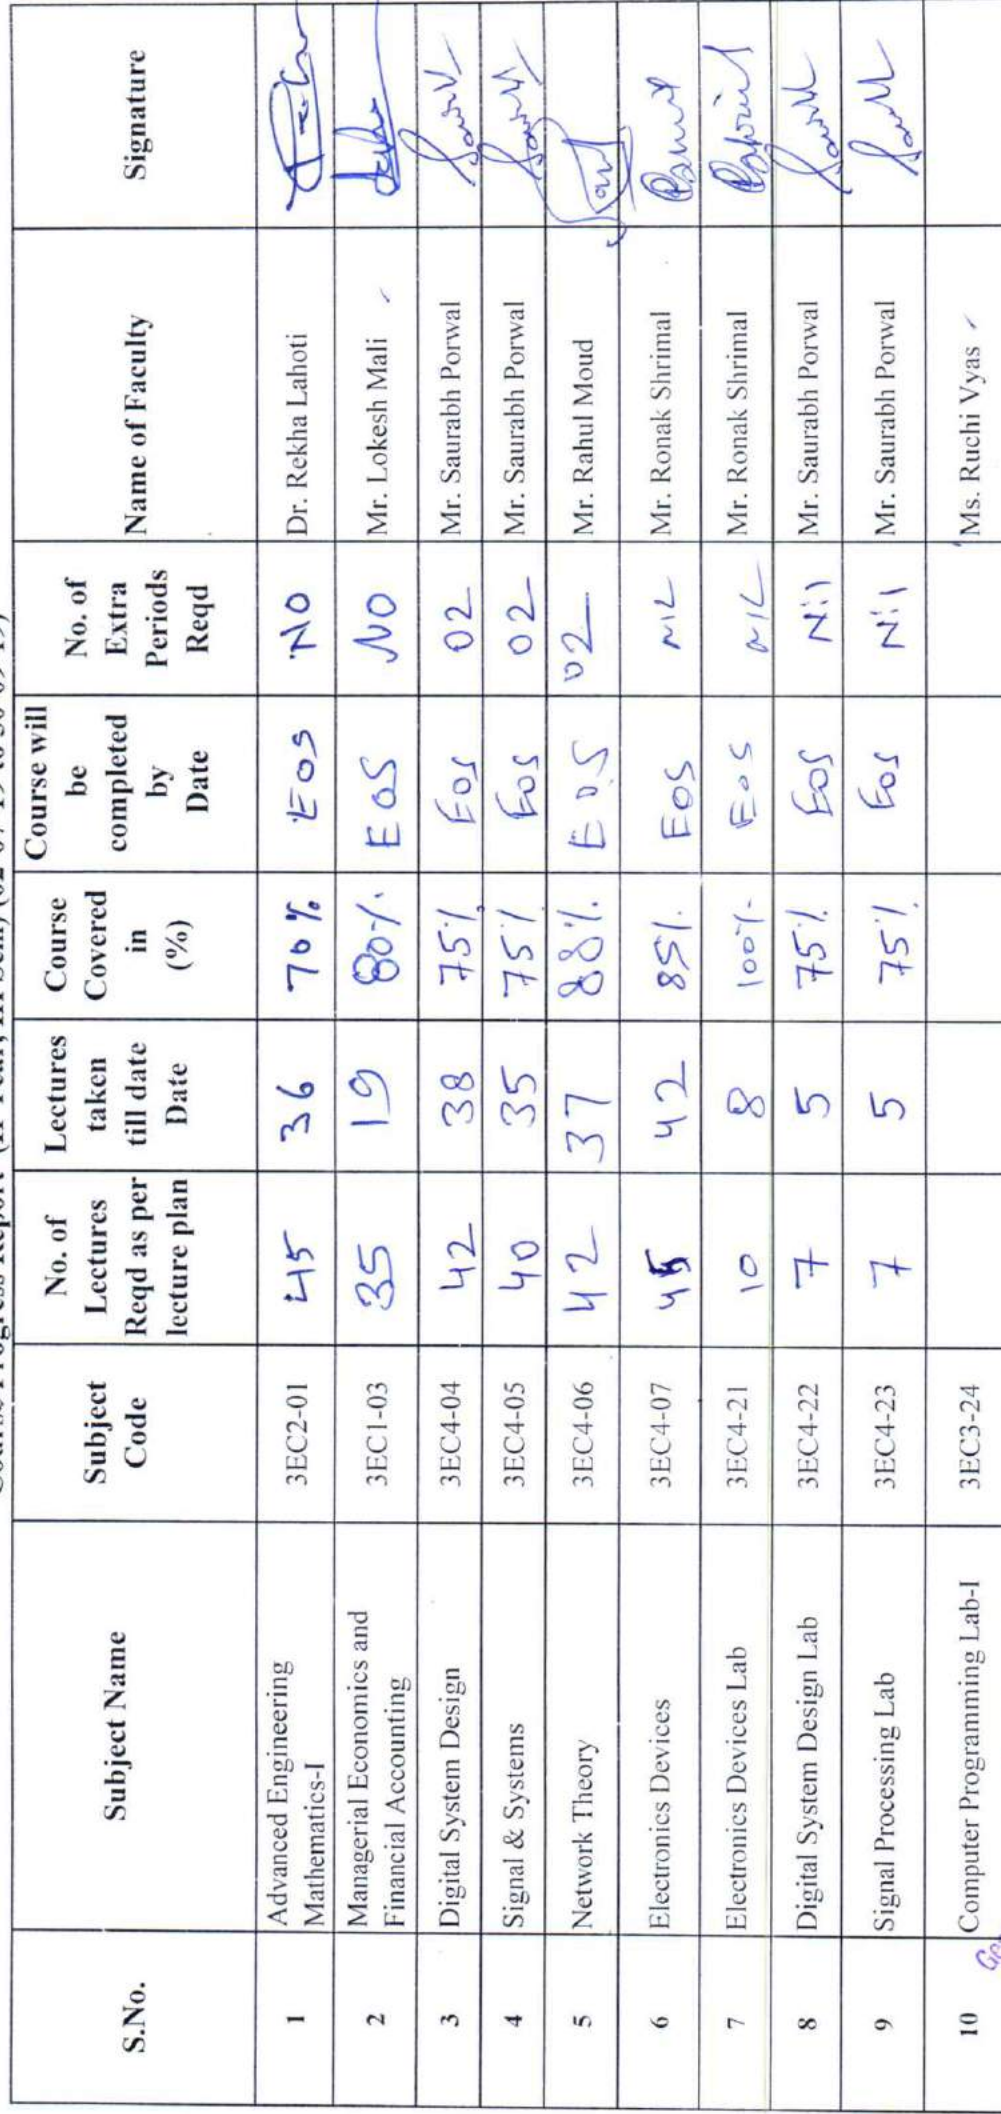 Course Progress Report (II Year, III Sem) (02-07-19 to 30-09-19)
S.No. Subject Name Subject Code No. of Lectures Reqd as per lecture plan Lectures taken till date Date Course Covered in (%) Course will be completed by Date No. of Extra Periods Reqd Name of Faculty Signature
1 Advanced Engineering Mathematics-I 3EC2-01 45 36 70% EOS NO Dr. Rekha Lahoti
2 Managerial Economics and Financial Accounting 3EC1-03 35 19 80% EOS NO Mr. Lokesh Mali
3 Digital System Design 3EC4-04 42 38 75% EOS 02 Mr. Saurabh Porwal
4 Signal & Systems 3EC4-05 40 35 75% EOS 02 Mr. Saurabh Porwal
5 Network Theory 3EC4-06 42 37 88% EOS 02 Mr. Rahul Moud
6 Electronics Devices 3EC4-07 45 42 85% EOS NIL Mr. Ronak Shrimal
7 Electronics Devices Lab 3EC4-21 10 8 100% EOS NIL Mr. Ronak Shrimal
8 Digital System Design Lab 3EC4-22 7 5 75% EOS Nil Mr. Saurabh Porwal
9 Signal Processing Lab 3EC4-23 7 5 75% EOS Nil Mr. Saurabh Porwal
10 Computer Programming Lab-I 3EC3-24 Ms. Ruchi Vyas